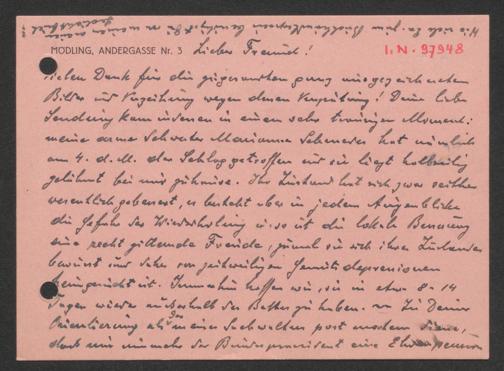 MÖDLING, ANDERGASSE Nr. 3 Lieber Freund!
I.N. 97948
Vielen Dank für die zugesandten ganz ausgezeichneten
Bilder und Verzeihung wegen deren Verspätung! Deine liebe
Sendung kam indessen in einem sehr traurigen Moment:
meine arme Schwester Marianne hat nämlich
am 4. d. M. der Schlag getroffen und sie liegt halbseitig
gelähmt bei mir zuhause. Ihr Zustand hat sich zwar seither
wesentlich gebessert, es besteht aber in jedem Augenblicke
die Gefahr der Wiederholung u. so ist die lokale Besserung
eine recht Freude, zumal sie sich ihres Zustandes
bewusst und daher von zeitweiligen Gemütsdepressionen
heimgesucht ist. Immerhin hoffen wir, sie in etwa 8-14
Tagen wieder außerhalb des Bettes zu haben. Zu Deiner
Orientierung als meines Sachwalters post mortem diene,
dass mir nunmehr der Bundespräsident eine